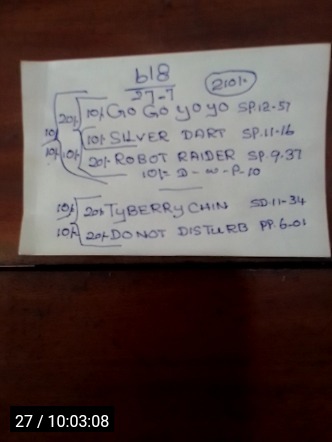 b18
27-7
210/-
20/- 10/- GO GO YO YO SP.12-57
10/- SILVER DART SP.11-16
20/- ROBOT RAIDER SP.9.37
10/- D-W-P-10
10/- 20/- TYBERRY CHIN SD.11-34
10/- 20/- DO NOT DISTURB PP.6-01
27 / 10:03:08